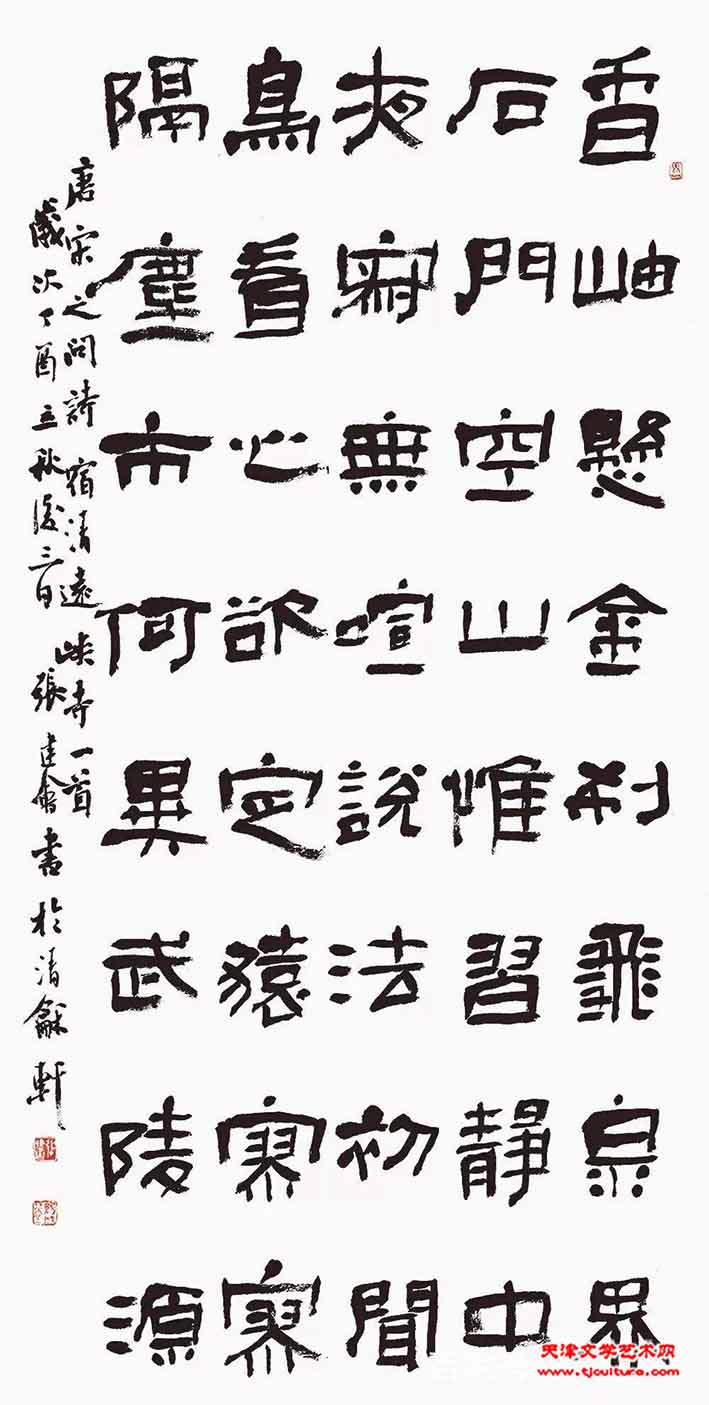 香岫懸金刹飛泉界
石門空山惟習靜中
夜寂無喧說法初聞
鳥看心欲定猿寥寥
隔塵市何異武陵源
唐宋之問詩宿清遠峽寺一首
歲次丁酉立秋後三日張建會書於清龢軒
天津文学艺术网
www.tjculture.com